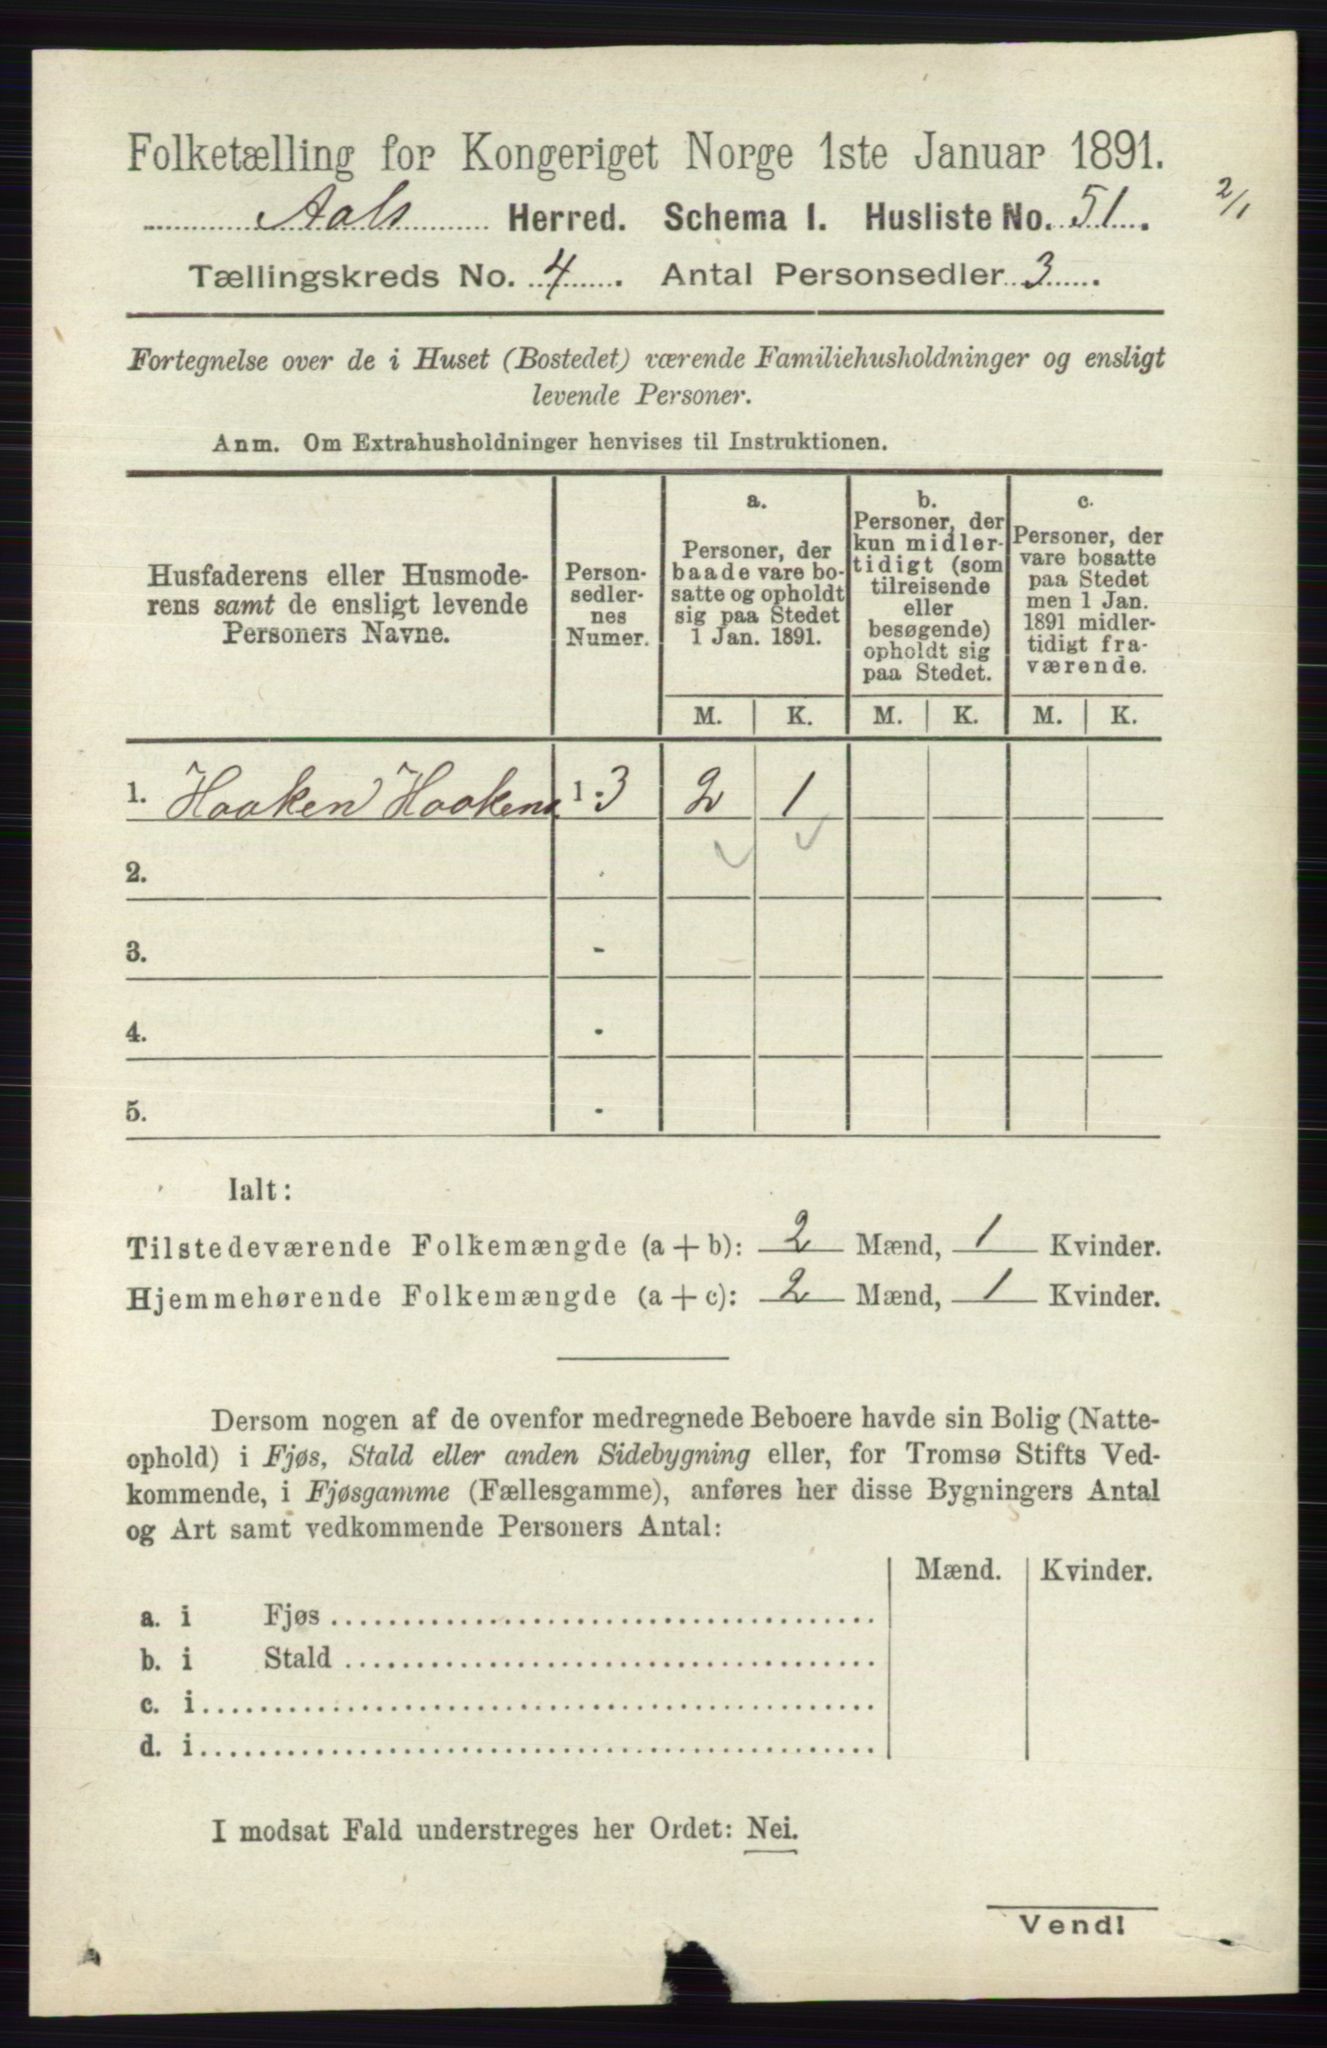 Folketælling for Kongeriget Norge 1ste Januar 1891.
Aals Herred. Schema I. Husliste No. 51.
2/1
Tællingskreds No. 4. Antal Personsedler 3.
Fortegnelse over de i Huset (Bostedet) værende Familiehusholdninger og ensligt
levende Personer.
Anm. Om Extrahusholdninger henvises til Instruktionen.
Husfaderens eller Husmode-
rens samt de ensligt levende
Personers Navne.
Person-
sedler-
nes
Numer.
a.
Personer, der
baade vare bo-
satte og opholdt
sig paa Stedet
1 Jan. 1891.
b.
Personer, der
kun midler-
tidigt (som
tilreisende
eller
besøgende)
opholdt sig
paa Stedet.
c.
Personer, der
vare bosatte
paa Stedet
men 1 Jan.
1891 midler-
tidigt fra-
værende.
M. K. M. K. M. K.
1. Haaken Haakens. 1-3 2 1
2.
3. -
4. -
5. -
Ialt:
Tilstedeværende Folkemængde (a + b): 2 Mænd, 1 Kvinder.
Hjemmehørende Folkemængde (a + c): 2 Mænd, 1 Kvinder.
Dersom nogen af de ovenfor medregnede Beboere havde sin Bolig (Natte-
ophold) i Fjøs, Stald eller anden Sidebygning eller, for Tromsø Stifts Ved-
kommende, i Fjøsgamme (Fællesgamme), anføres her disse Bygningers Antal
og Art samt vedkommende Personers Antal:
Mænd. Kvinder.
a. i Fjøs
b. i Stald
c. i
d. i
I modsat Fald understreges her Ordet: Nei.
Vend!